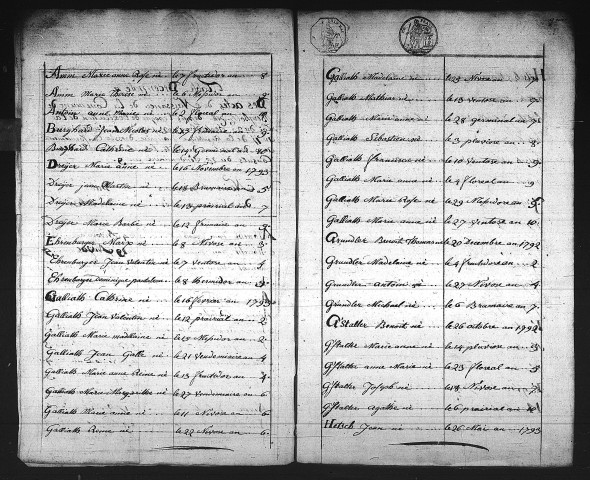 Amm Marie anne Rose né le 7 fructidor an 8.
Amm Marie Therese né le 6 Messidor an 2.
Antoine né le 2 floreal an 4.
Burghard Jean Nicolas né le 23 an
Burghard Catherine né le 19 Germinal an
Dreyer Marie anne né le 16 Novembre an 1793
Dreyer jean Martin né le 18 Brumaire an 5.
Dreyer Madelaine né le 13 prairial an 7
Dreyer Marie Barbe né le 12 frimaire an
Ehrenburger Marx né le 8 Nivose an 3.
Ehrenburger Jean Valentin né le 7 ventose an 4
Ehrenburger dominique pantaleon le 8 thermidor an
Galliath Catherine né le 16 fevrier an 1793
Galliath Jean Valentin né le 12 prairial an 2
Galliath Marie madelaine né le 19 Messidor an 2.
Galliath Jean Galle né le 21 Vendemiaire an 4
Galliath Marie anne Reine né le 13 fructidor an 4.
Galliath Marie né le 27 Vendemiaire an 6.
Galliath Marie anne né le 11 Nivose an 6.
Galliath Reine né le 22 Nivose an 6.
Galliath Madelaine né le 23 Nivose an 7.
Galliath Mathias né le 13 Ventose an 7.
Galliath Marie anne né le 28 germinal an 7.
Galliath Sebastien né le 3 pluviose an 8.
Galliath francoise né le 10 Ventose an 9.
Galliath Marie anne né le 4 floreal an 9
Galliath Marie Rose né le 29 Messidor an
Galliath Marie né le 27 Ventose an 10.
Grundler Benoit Thomas né le 20 decembre an 1792
Grundler Madelaine né le 4 fructidor an 2.
Grundler antoine né le 27 Nivose an 4.
Grundler Michael né le 6 Brumaire an 7.
Gstalter Benoit né le 26 octobre an 1792.
Gstalter Marie anne né le 14 pluviose an 2.
Gstalter anne Marie né le 23 floreal an 5.
Gstalter Joseph né le 18 Nivose an 7
Gstalter agathe né le 6 prairial an
Hotsch Jean né le 26 Mai an 1793